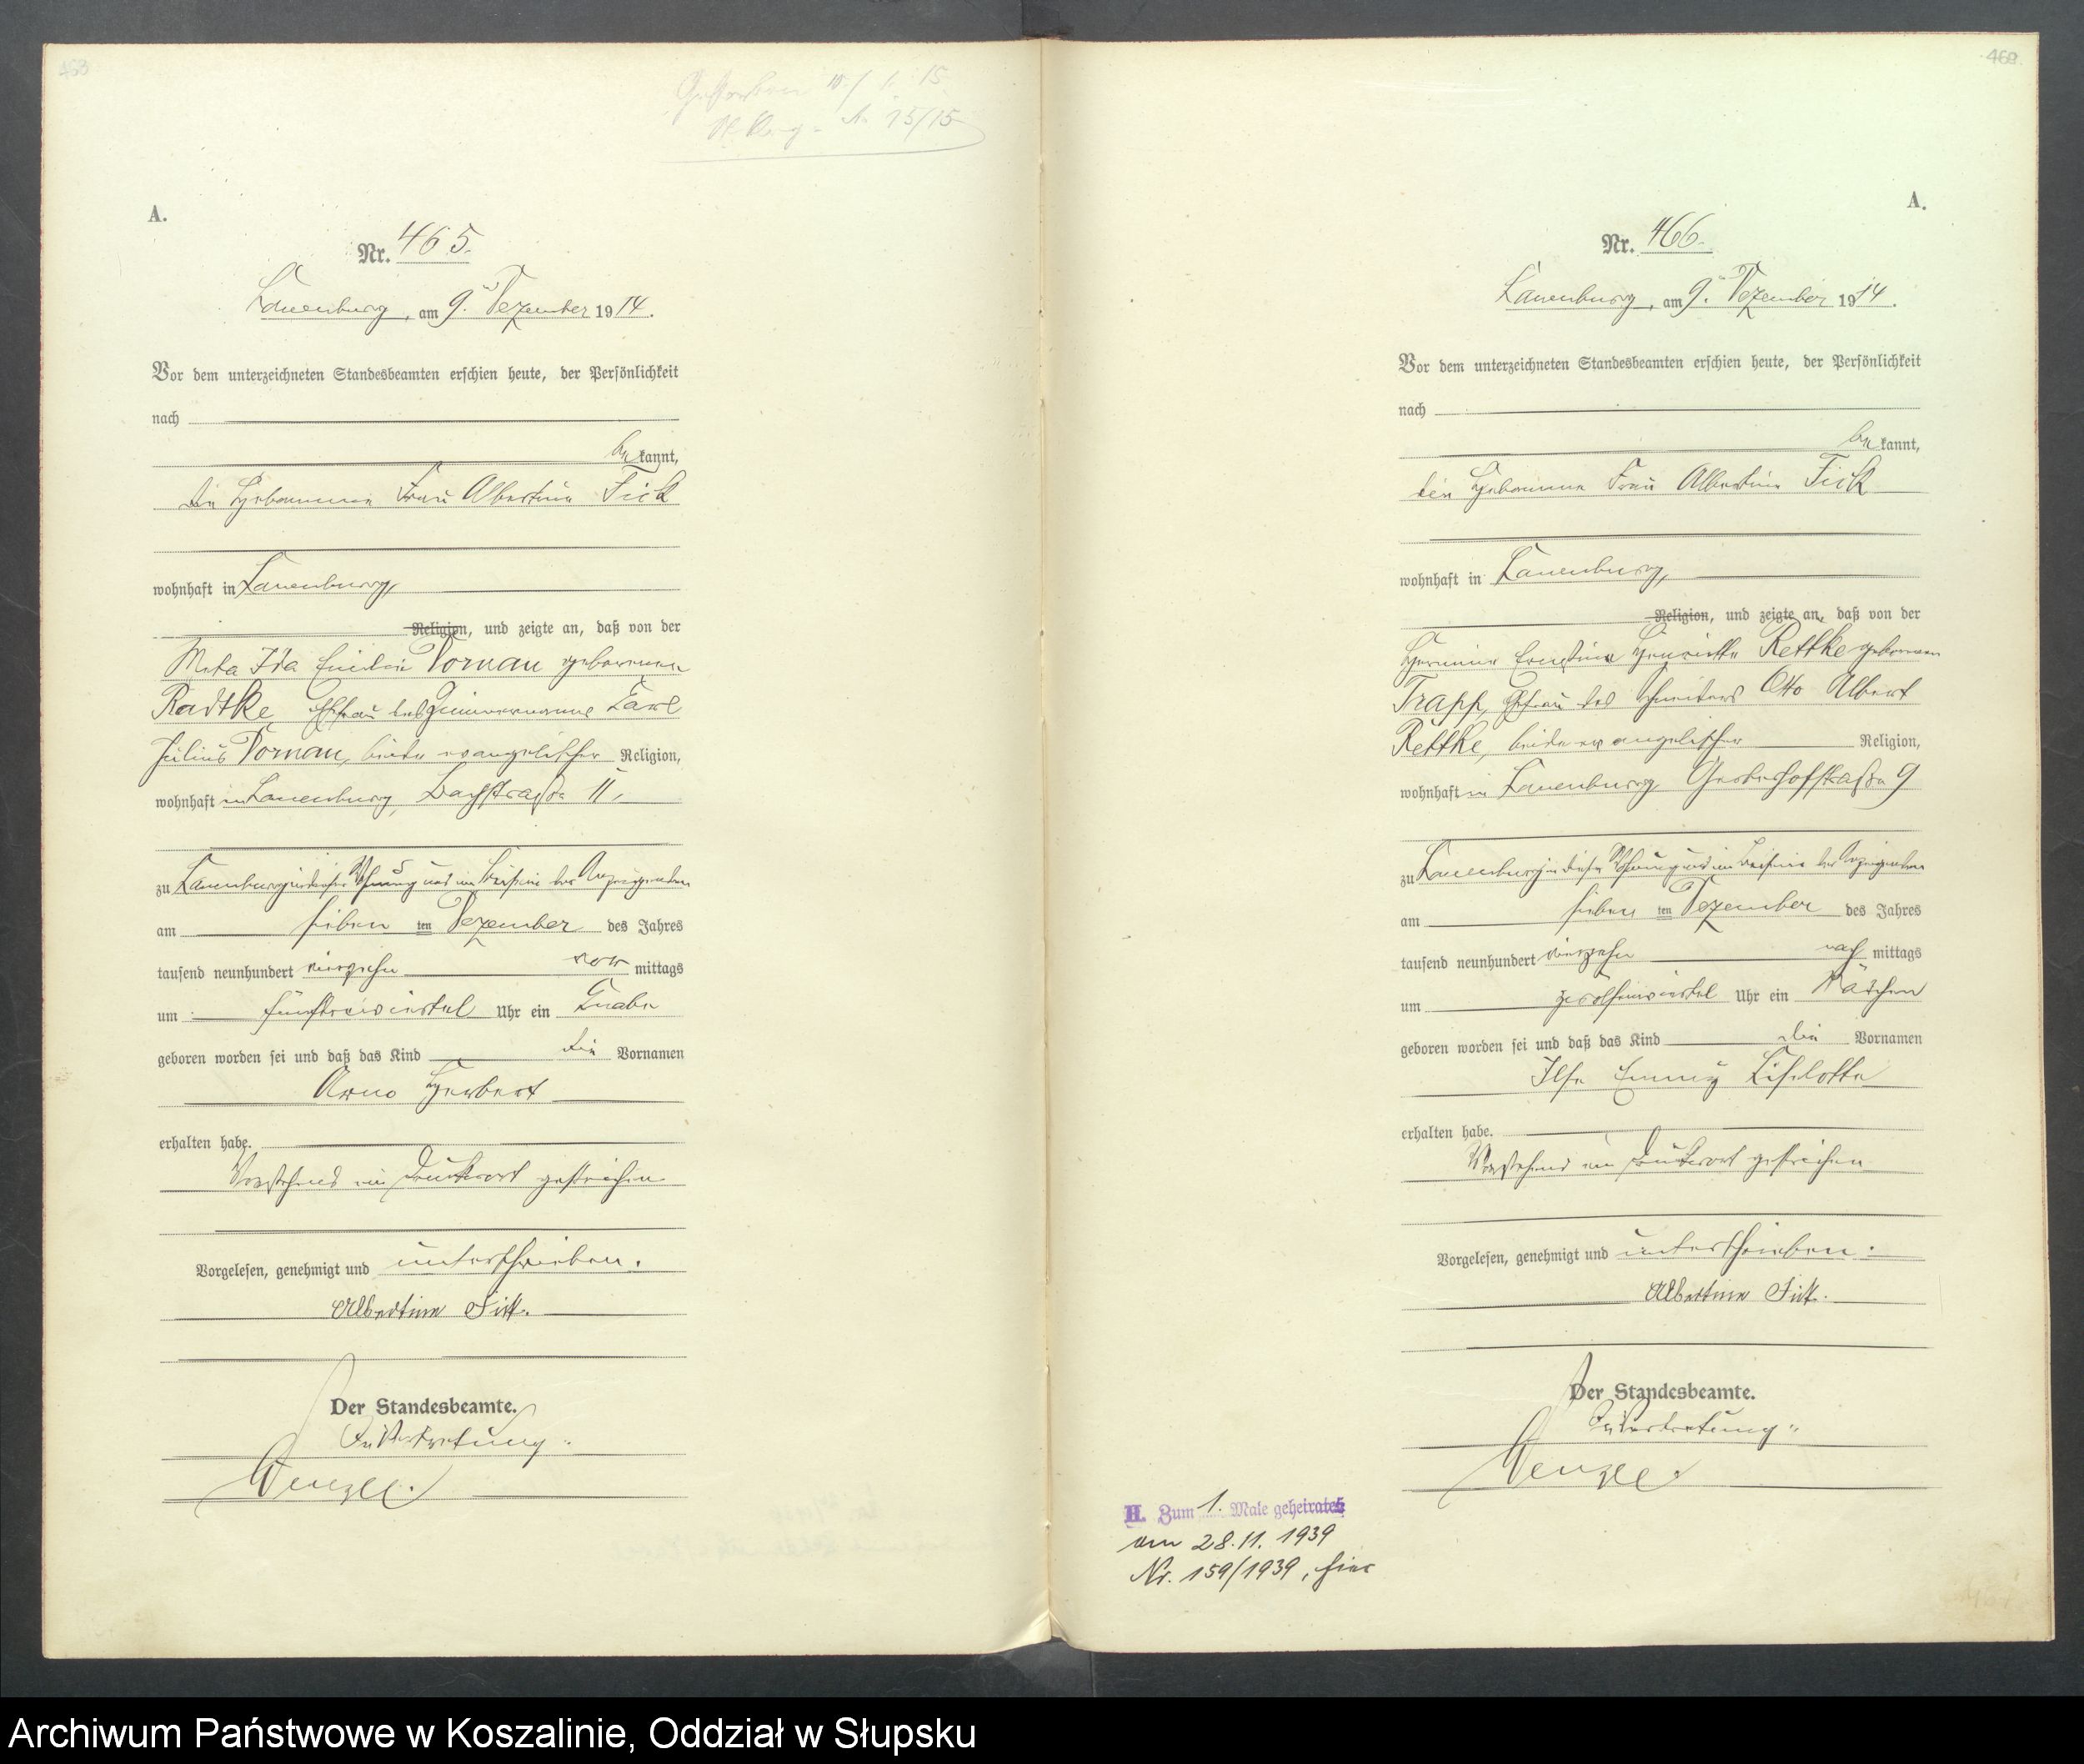 463
Gestorben 10/1. 15
Nr 15/15
A.
Nr. 465.
Lauenburg, am 9. Dezember 1914.
Vor dem unterzeichneten Standesbeamten erschien heute, der Persönlichkeit
nach
be kannt,
die Hebamme Frau Albertine Fick
wohnhaft in Lauenburg,
Religion, und zeigte an, daß von der
Meta Ida Emilie Dornau geborenen
Radtke, Ehefrau des Zimmermanns Karl
Julius Dornau, beide evangelischer Religion,
wohnhaft in Lauenburg, Bachstraße 11,
zu Lauenburg in dieser Wohnung und im Beisein der Anzeigenden
am sieben ten Dezember des Jahres
tausend neunhundert vierzehn vor mittags
um fünfdreiviertel Uhr ein Knabe
geboren worden sei und daß das Kind die Vornamen
Arno Herbert
erhalten habe.
Vorstehend ein Druckwort gestrichen
Vorgelesen, genehmigt und unterschrieben.
Albertine Fick.
Der Standesbeamte.
In Vertretung:
Wenzel.
A.
Nr. 466.
Lauenburg, am 9. Dezember 1914.
Vor dem unterzeichneten Standesbeamten erschien heute, der Persönlichkeit
nach
be kannt,
die Hebamme Frau Albertine Fick
wohnhaft in Lauenburg,
Religion, und zeigte an, daß von der
Hermine Ernstine Henriette Rettke geborenen
Trapp, Ehefrau des Schneiders Otto Albert
Rettke, beide evangelischer Religion,
wohnhaft in Lauenburg, Gerberhofstraße 9
zu Lauenburg in dieser Wohnung und im Beisein der Anzeigenden
am sieben ten Dezember des Jahres
tausend neunhundert vierzehn nach mittags
um zwölfeinviertel Uhr ein Mädchen
geboren worden sei und daß das Kind die Vornamen
Ilse Emmy Liselotte
erhalten habe.
Vorstehend ein Druckwort gestrichen
Vorgelesen, genehmigt und unterschrieben.
Albertine Fick.
Der Standesbeamte.
In Vertretung:
Wenzel.
H. Zum 1. Male geheiratet
am 28.11.1939
Nr. 159/1939, hier
Archiwum Państwowe w Koszalinie, Oddział w Słupsku